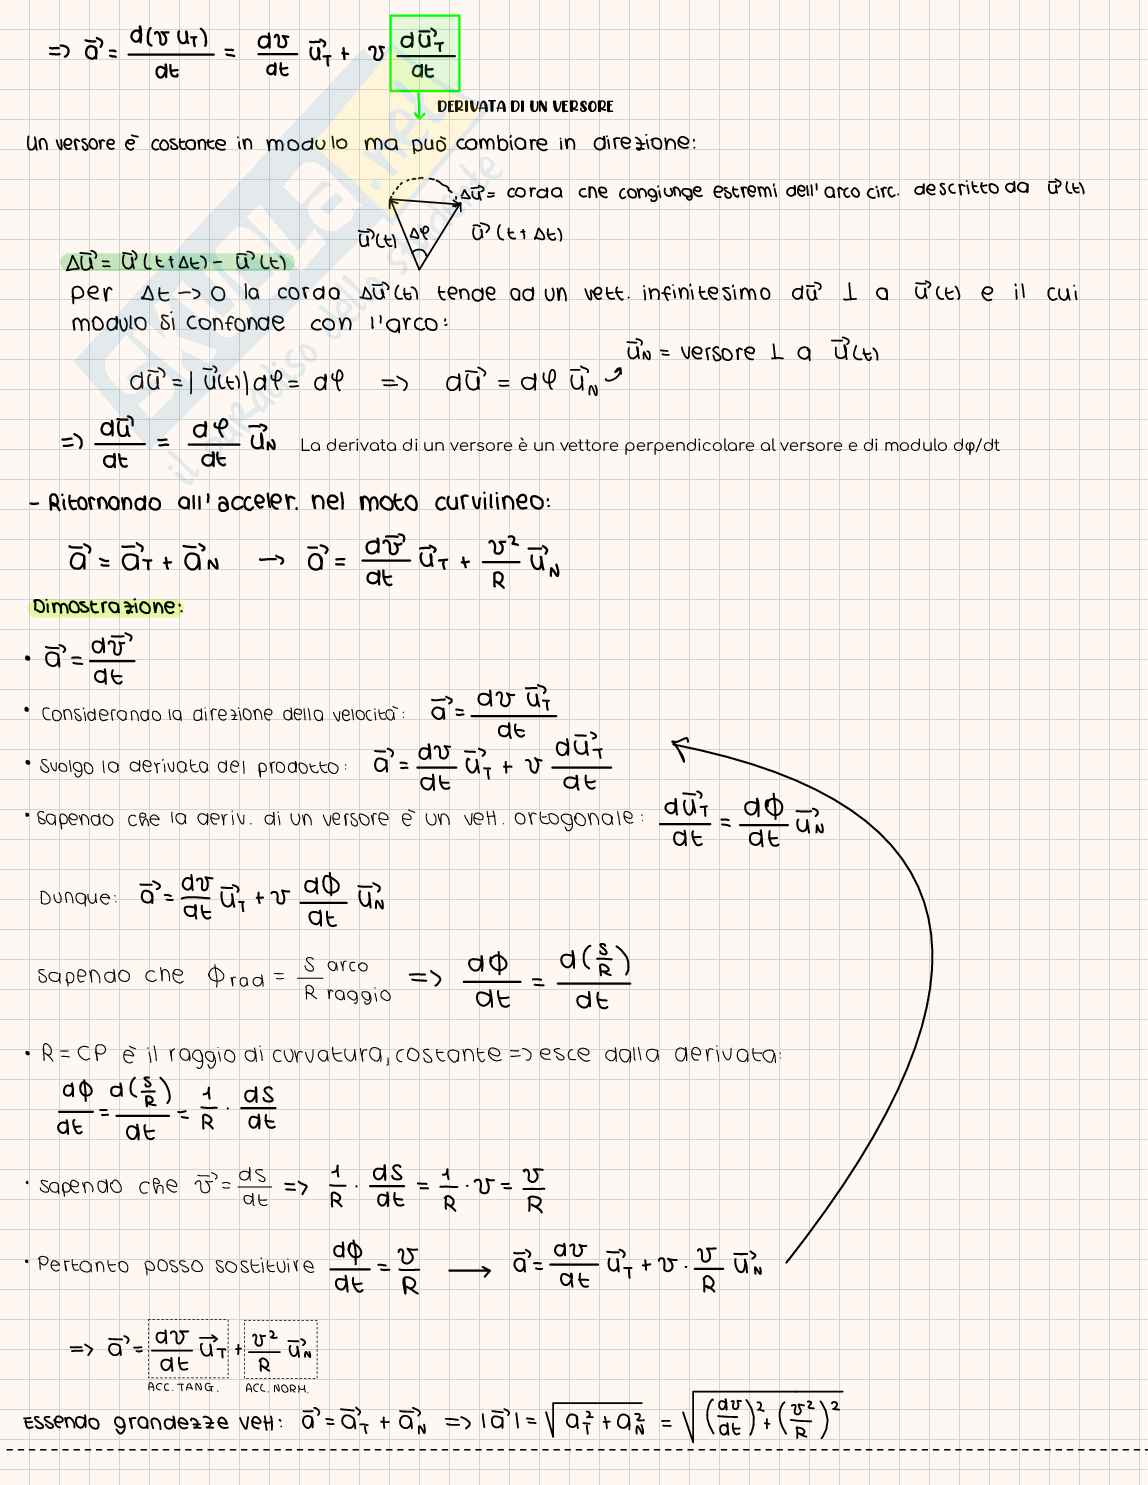 => a⃗ = d(v u_T)/dt = dv/dt u⃗_T + v du⃗_T/dt
DERIVATA DI UN VERSORE
Un versore è costante in modulo ma può cambiare in direzione:
Δu⃗ = corda che congiunge estremi dell'arco circ. descritto da u⃗(t)
u⃗(t) Δφ u⃗(t+Δt)
Δu⃗ = u⃗(t+Δt) - u⃗(t)
per Δt → 0 la corda Δu⃗(t) tende ad un vett. infinitesimo du⃗ ⊥ a u⃗(t) e il cui
modulo si confonde con l'arco:
u⃗_N = versore ⊥ a u⃗(t)
du⃗ = |u⃗(t)| dφ = dφ => du⃗ = dφ u⃗_N
=> du⃗/dt = dφ/dt u⃗_N La derivata di un versore è un vettore perpendicolare al versore e di modulo dφ/dt
- Ritornando all'acceler. nel moto curvilineo:
a⃗ = a⃗_T + a⃗_N → a⃗ = dv⃗/dt u⃗_T + v²/R u⃗_N
Dimostrazione:
• a⃗ = dv⃗/dt
• Considerando la direzione della velocità: a⃗ = dv u⃗_T/dt
• Svolgo la derivata del prodotto: a⃗ = dv/dt u⃗_T + v du⃗_T/dt
• Sapendo che la deriv. di un versore è un vett. ortogonale: du⃗_T/dt = dΦ/dt u⃗_N
Dunque: a⃗ = dv/dt u⃗_T + v dΦ/dt u⃗_N
Sapendo che Φrad = S arco/R raggio => dΦ/dt = d(S/R)/dt
• R = CP è il raggio di curvatura, costante => esce dalla derivata:
dΦ/dt = d(S/R)/dt = 1/R · dS/dt
• Sapendo che v⃗ = dS/dt => 1/R · dS/dt = 1/R · v = v/R
• Pertanto posso sostituire dΦ/dt = v/R → a⃗ = dv/dt u⃗_T + v · v/R u⃗_N
=> a⃗ = dv/dt u⃗_T + v²/R u⃗_N
ACC. TANG. ACC. NORM.
Essendo grandezze vett: a⃗ = a⃗_T + a⃗_N => |a⃗| = √(a_T² + a_N²) = √((dv/dt)² + (v²/R)²)
SKUOLA.net
il paradiso dello studente